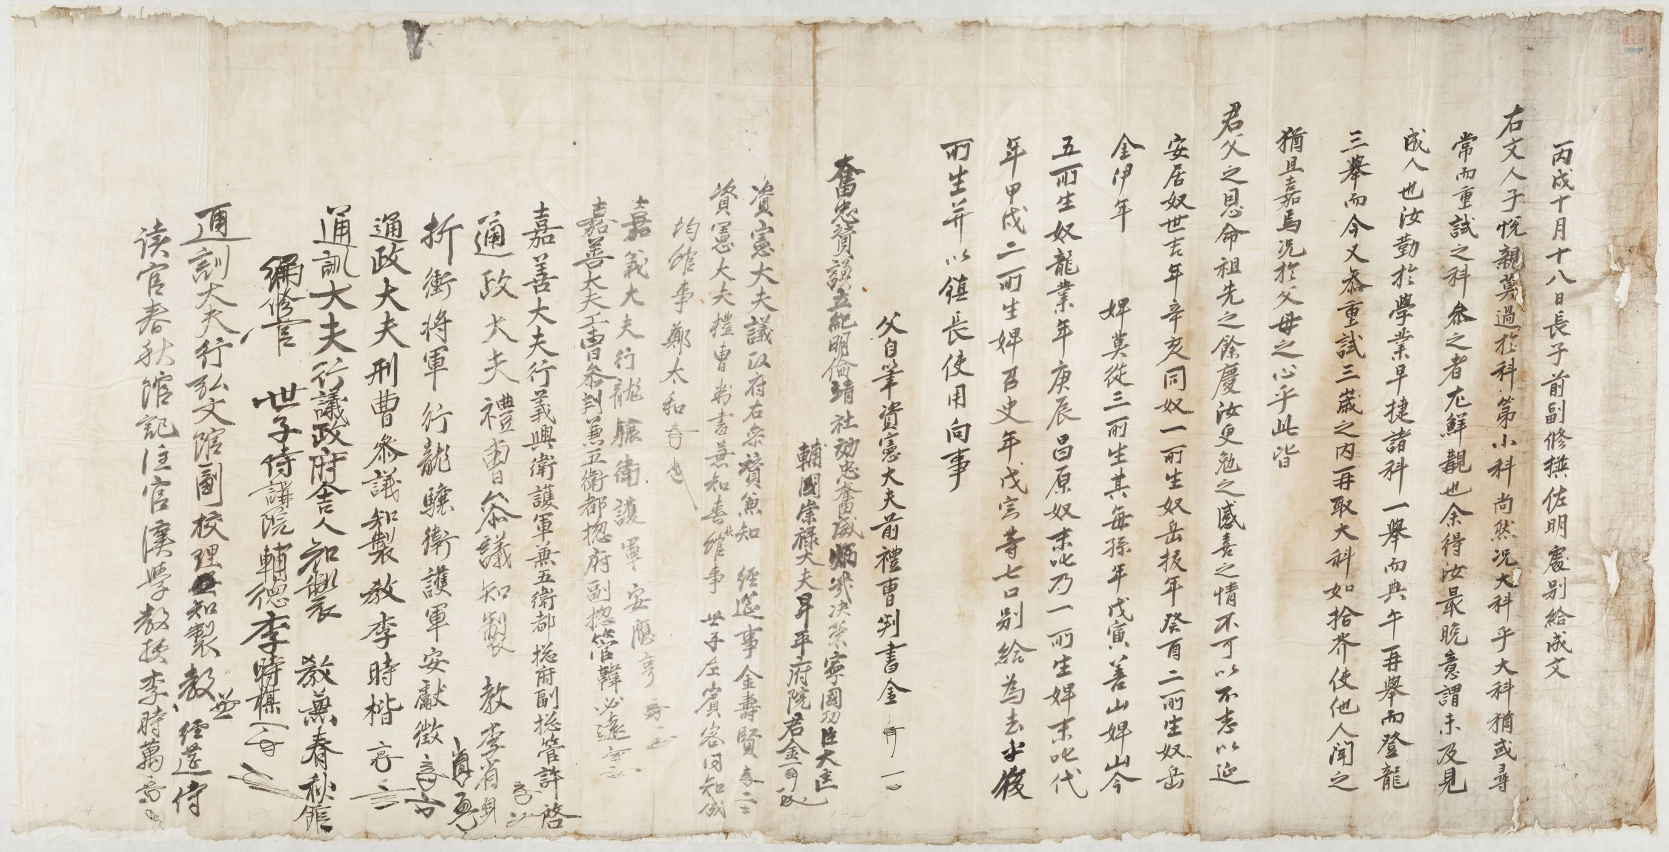 丙戌十月十八日長子前副修撰佐明處別給成文
右文人子悅親莫過於科第小科尚然况大科乎大科猶或尋
常而重試之科叅之者尤鮮覯也余得汝最晩意謂未及見
成人也汝勤於學業早捷諸科一擧而典午再擧而登龍
三擧而今又叅重試三歲之內再取大科如拾芥使他人聞之
猶且嘉焉况於父母之心乎此皆
君父之恩命祖先之餘慶汝更勉之感喜之情不可以不志以延
安居奴世吉年辛亥同奴一所生奴岳扳年癸酉二所生奴岳
金伊年 婢莫從三所生其每孫年戊寅善山婢山今
五所生奴龍業年庚辰昌原奴末叱乃一所生婢末叱代
年甲戌二所生婢召史年戊宗等七口別給爲去乎後
所生幷以鎭長使用向事
父自筆資憲大夫前禮曹判書金
奮忠贊謨立紀明倫靖社効忠奮威炳幾决策寧國功臣大匡
輔國崇祿大夫昇平府院君金
資憲大夫議政府右叅贊兼知 經筵事金壽賢
資憲大夫禮曹判書兼知春秋館事 世子左賓客同知成
均館事鄭太和
嘉義大夫行龍驤衛護軍安應亨
嘉善大夫工曹叅判兼五衛都摠府副摠管韓必遠
嘉善大夫行義興衛護軍兼五衛都摠府副摠管許啓
通政大夫禮曹叅議知製 敎李省身
折衝將軍行龍驤衛護軍安獻徵
通政大夫刑曹叅議知製敎李時楷
通訓大夫行議政府舍人知製 敎兼春秋館
編修官 世子侍講院輔德李時楳
通訓大夫行弘文館副校理知製敎 經筵侍
讀官春秋館記注官漢學敎授李時萬